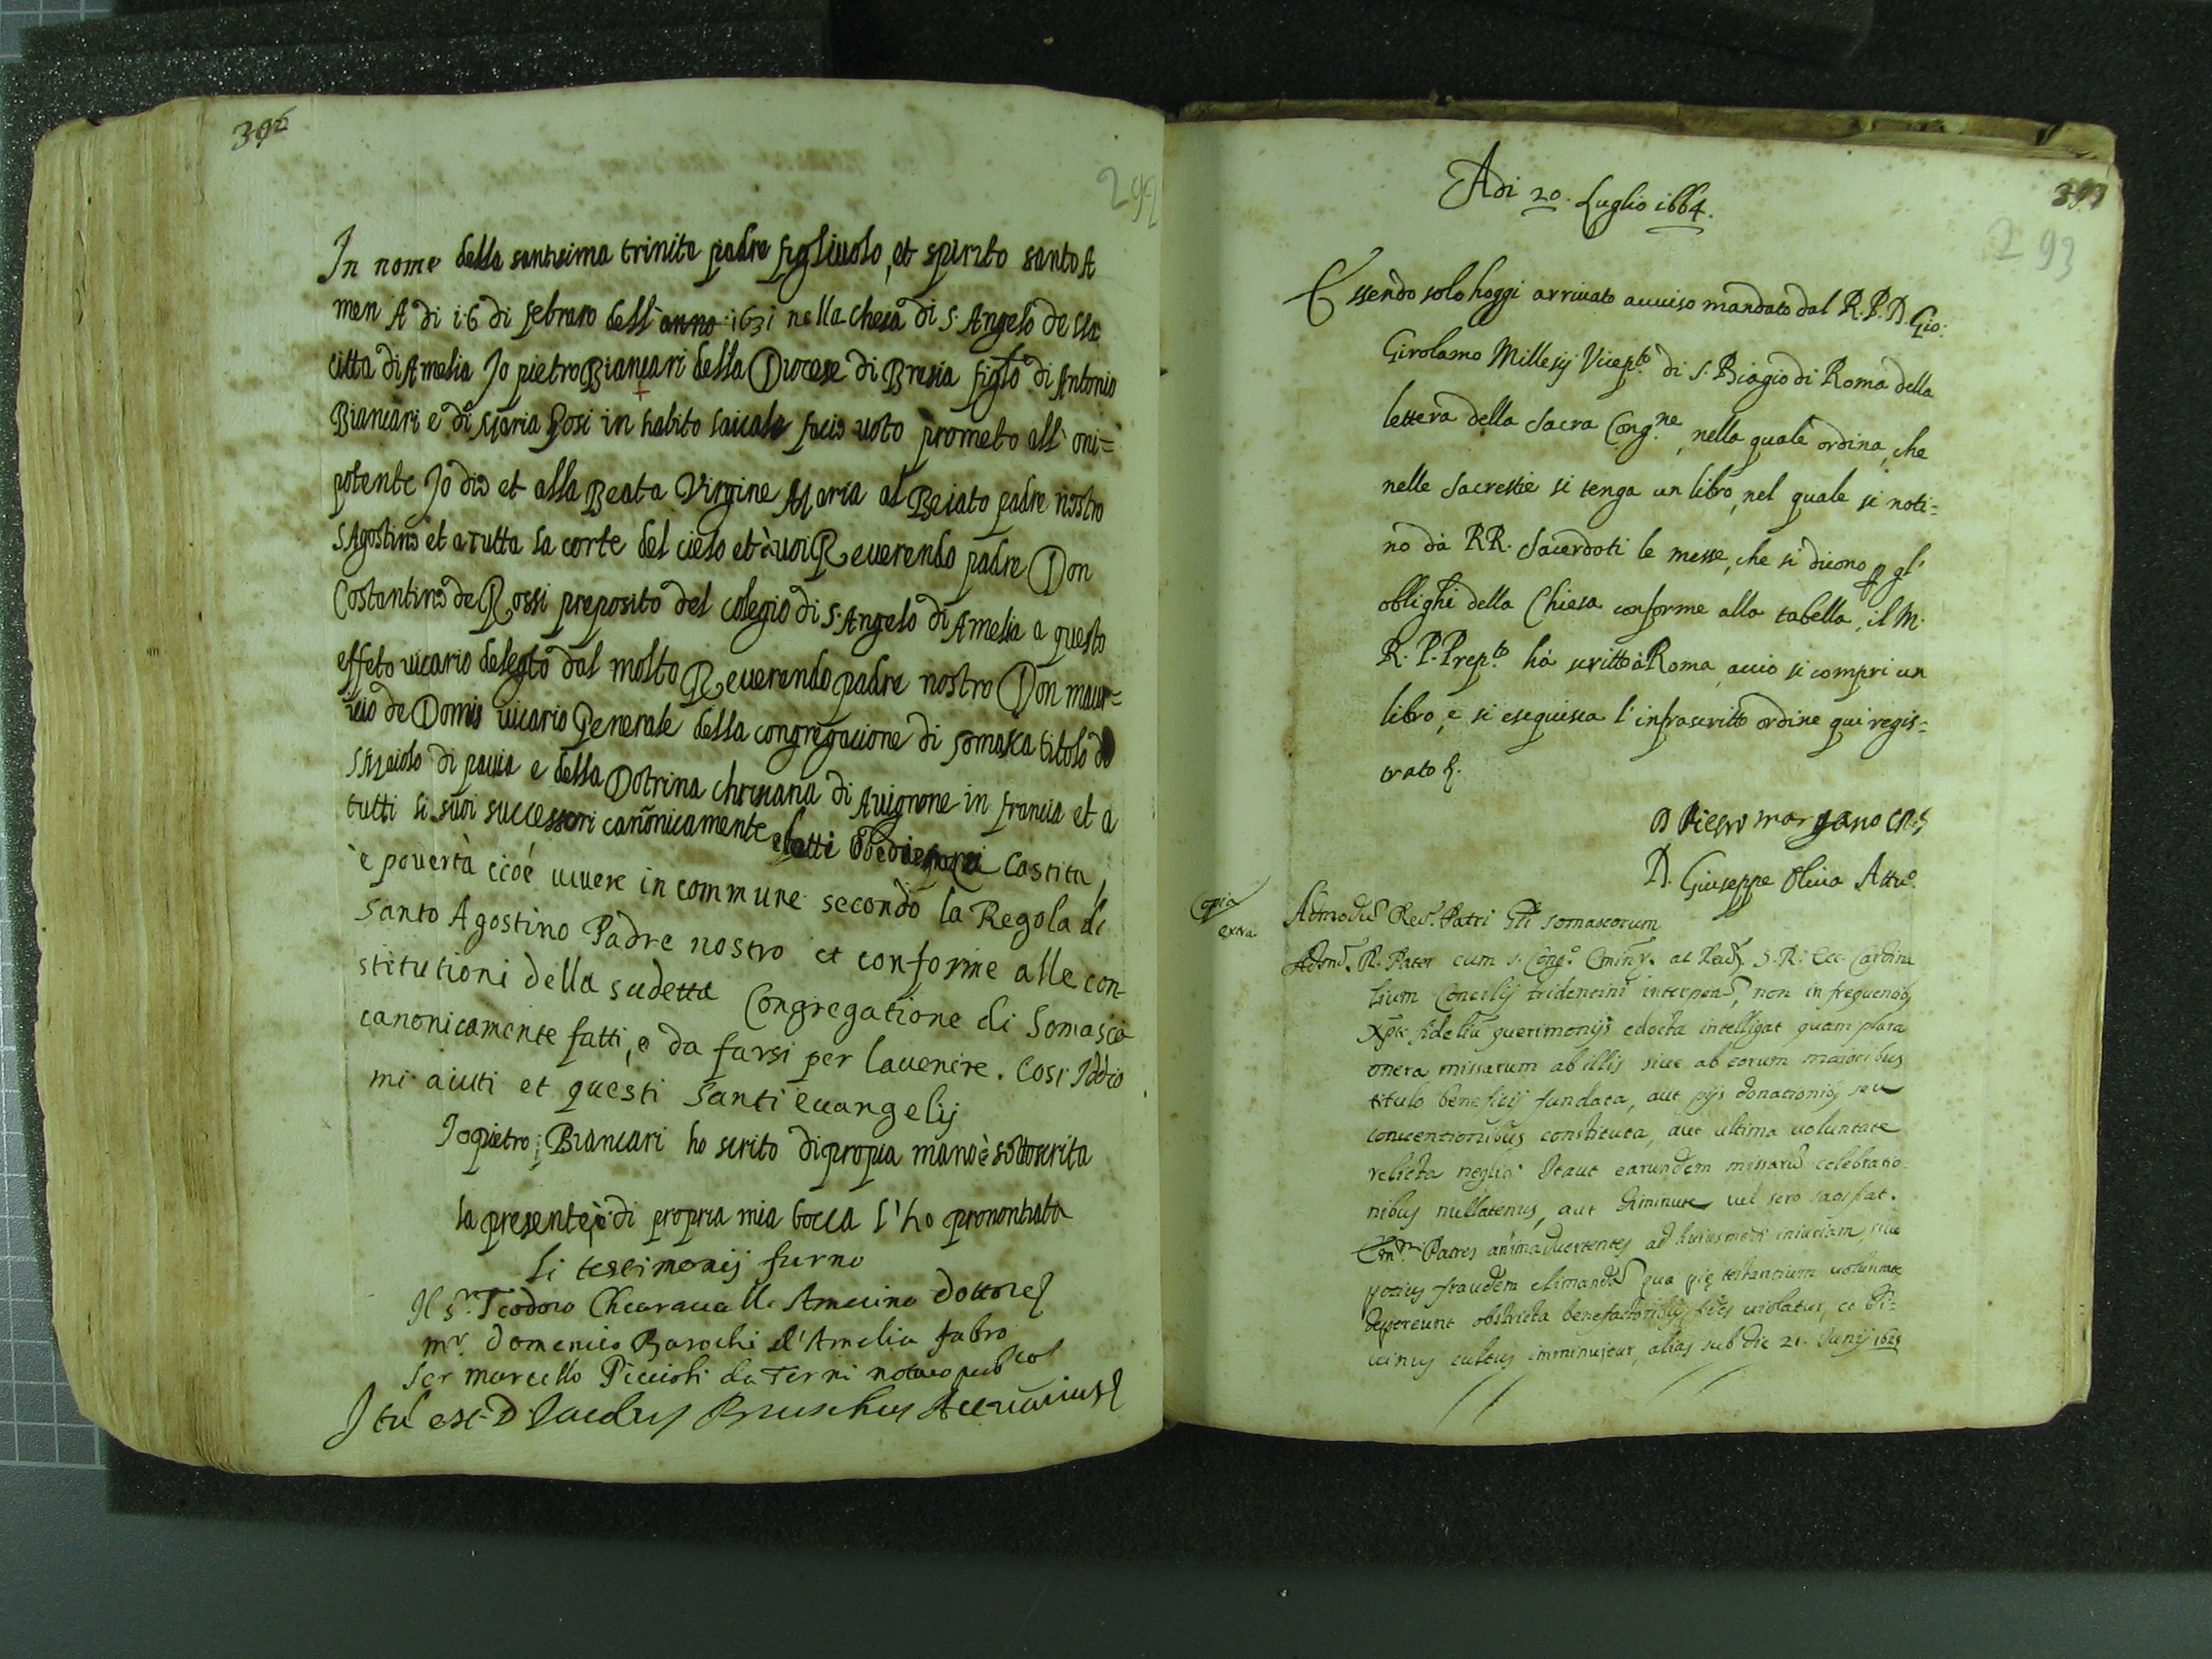 396
292
In nome della santisima trinita padre figliuolo, et spirito santo A
men A di i6 di febraro dell'anno 1631 nella chesa di S. Angelo della
citta di Amelia Io pietro Biancari della Diocese di Bresia figlo di Antonio
Biancari e di Maria Rosi in habito laicale facio voto prometo all' oni=
potente Jo dio et alla Beata Virgine Maria al Beiato padre nostro
S Agostino et a tutta la corte del cielo et à voi Reuerendo padre Don
Costantino de Rossi preposito del colegio di S. Angelo di Amelia a questo
effeto vicario delegto dal molto Reuerendo padre nostro Don maur=
icio de Domis vicario Generale della congregacione di Somasca titolo d
S Maiolo di pauia e della Dotrina christiana di Auignone in francia et a
tutti li suoi successori cañonicamente eletti obedienza Castita,
è pouertà cioé uiuere in commune secondo la Regola di
Santo Agostino Padre nostro et conforme alle con
stitutioni della sudetta Congregatione di Somasca
canonicamente fatti, e da farsi per lauenire. Cosi Iddio
mi aiuti et questi Santi euangelij
Io pietro Biancari ho scrito di propia mano è sottoscrita
la presente, è di propria mia bocca l'ho prononhata
Li testimonij furno
Il Sr. Teodoro Chiaraualli Amerino Dottore
mr. Domenico Barochi d'Amelia fabro
Ser marcello Piccioli da Terni notaro pub
Ita est D. Jacobus Bruschus Actuarius
397
293
Adi 20. Luglio 1664.
Essendo solo hoggi arriuato auuiso mandato dal R. P. D. Gio:
Girolamo Millesij Vicepto. di S. Biagio di Roma della
lettera della Sacra Congne, nella quale ordina, che
nelle Sacrestie si tenga un libro, nel quale si noti=
no da RR. Sacerdoti le messe, che si dicono p gl'
oblighi della Chiesa conforme alla tabella, il M.
R. P. Prepto. há scritto à Roma, acciò si compri un
libro, e si eseguisca l'infrascritto ordine qui regis=
trato
D Pietro margano CRS
D. Giuseppe Oliua Attuo.
Copia
extra
Admodu Redo. Patri Gli Somascorum
Admd. R. Pater cum S. Congo. Eminr. ac Reud. S. R. Ecc. Cardina
lium Concilij tridentini interpm, non infrequentib
Xpi fideliu querimonijs edocta intelligat quam plura
onera missarum ab illis siue ab eorum maioribus
titulo beneficij fundata, aut pijs donationib, seu
conuentionibus constituta, aut ultima uoluntate
relicta neglig Itaut earundem missaru celebratio
nibus nullatenus, aut diminute uel sero satisfiat.
Emmi Patres animaduertentes ad huiusmodi iniuriam, siue
potius fraudem elimandã qua pię testantium uoluntate
depereunt obstricta benefactoribus fides uiolatur, ac Di=
uinus cultus imminuitur, alias sub die 21. Junij 1625